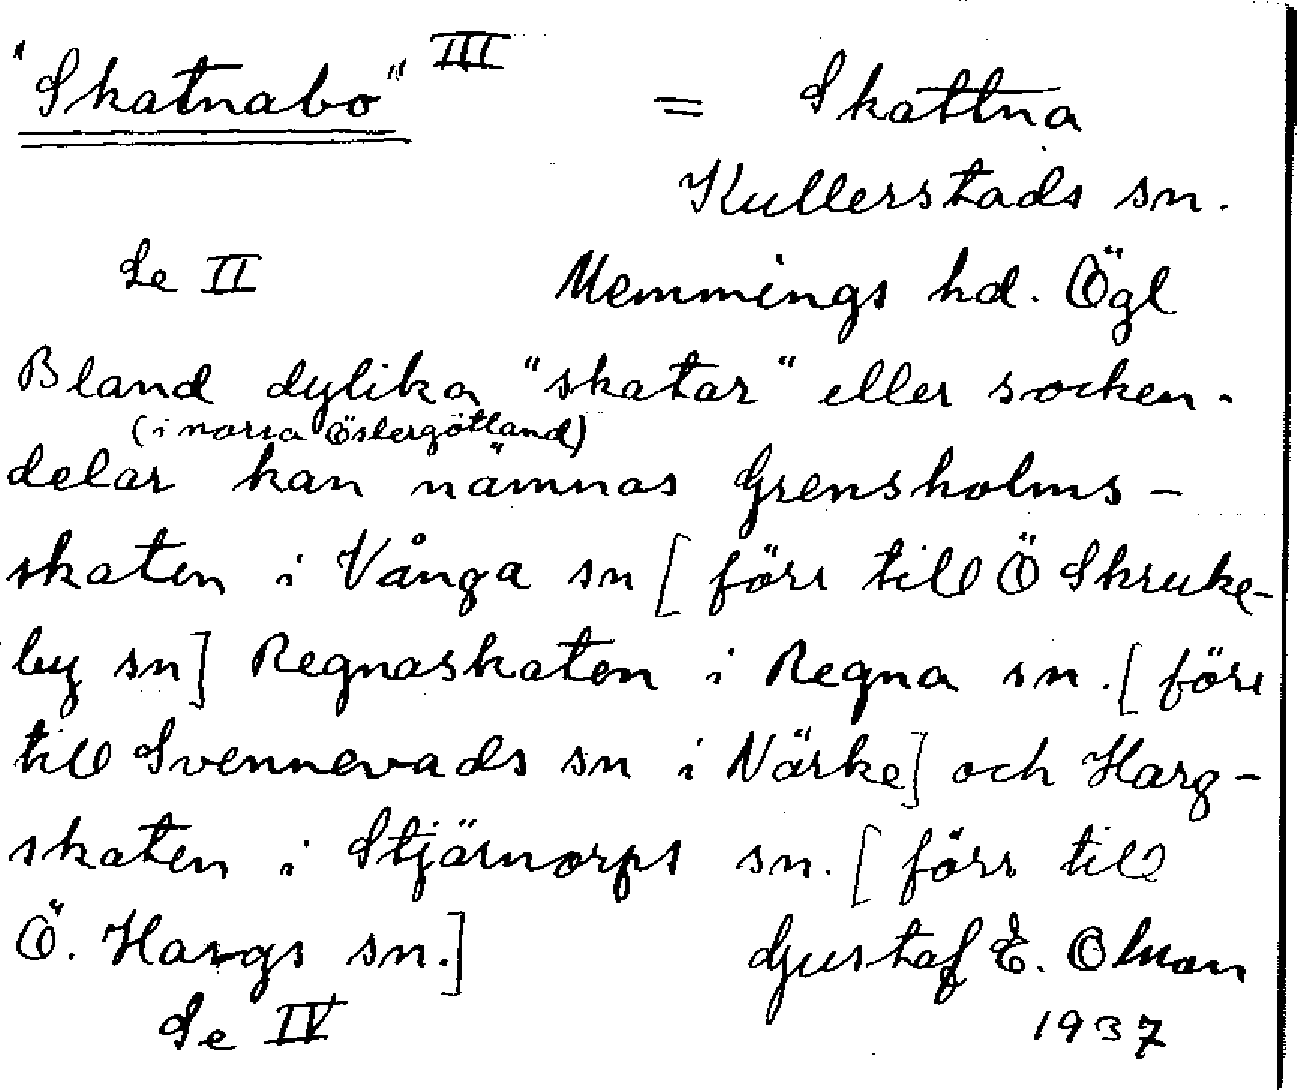 "Skatnabo" III = Skattna
Kullerstads sn.
Se II Memmings hd. Ögl
Bland dylika "skatar" eller socken-
(i norra Östergötland)
delar kan nämnas Grensholms-
skaten i Vånga sn [förr till Ö Skruke-
by sn] Regnaskaten i Regna sn. [förr
till Svennevads sn i Närke] och Harg-
skaten i Stjärnorps sn. [förr till
Ö. Hargs sn.] Gustaf E. Olsson
Se IV 1937